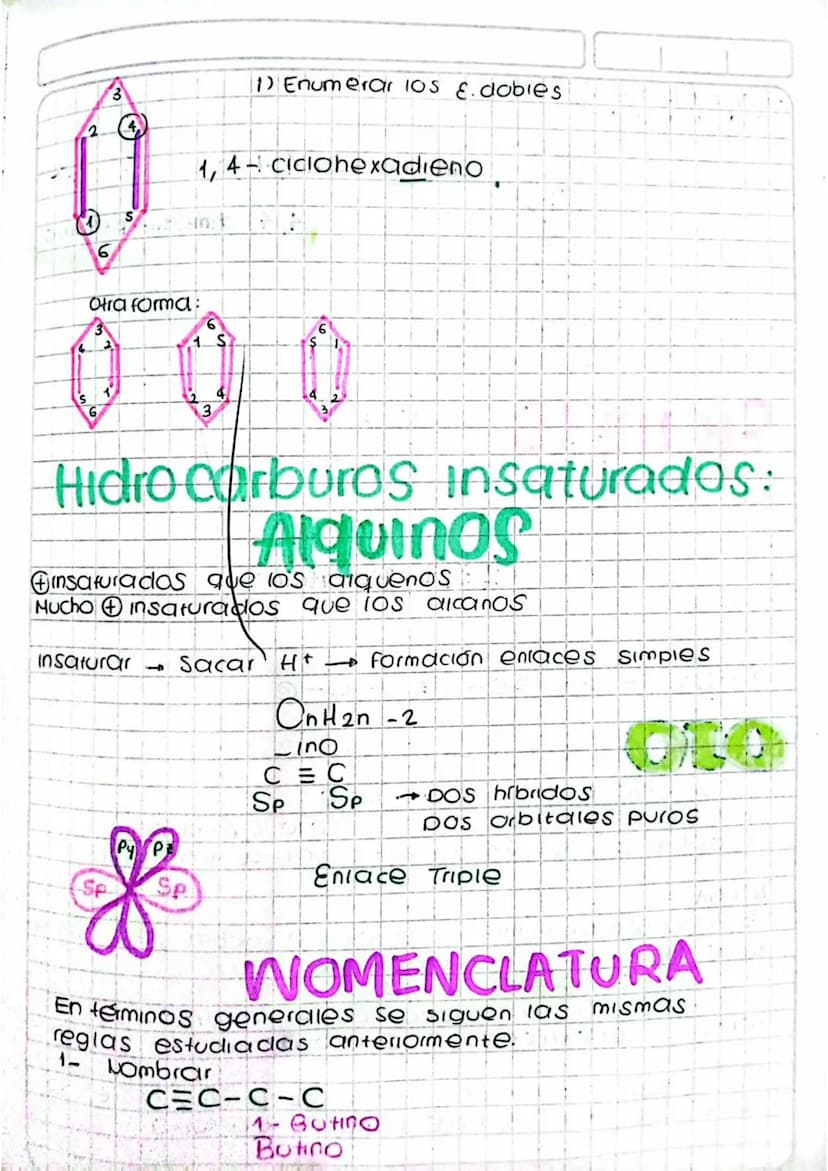 1) Enumerar los E. dobles
3
2 4
1 5
6
1, 4 - ciclohexadieno.
Otra forma:
3
4 2
5 1
6
6
1 5
2 4
3
6
5 1
4 2
3
Hidrocarburos insaturados:
Alquinos
⊕ insaturados que los alquenos
Mucho ⊕ insaturados que los alcanos
insaturar → sacar H+ → Formación enlaces simples
CnH2n - 2
_ino
C ≡ C
Sp Sp → Dos híbridos
Dos orbitales puros
OJO
Py Pz
Sp Sp
Enlace Triple
NOMENCLATURA
En términos generales se siguen las mismas
reglas estudiadas anteriormente.
1- Nombrar
C≡C-C-C
1- Butino
Butino